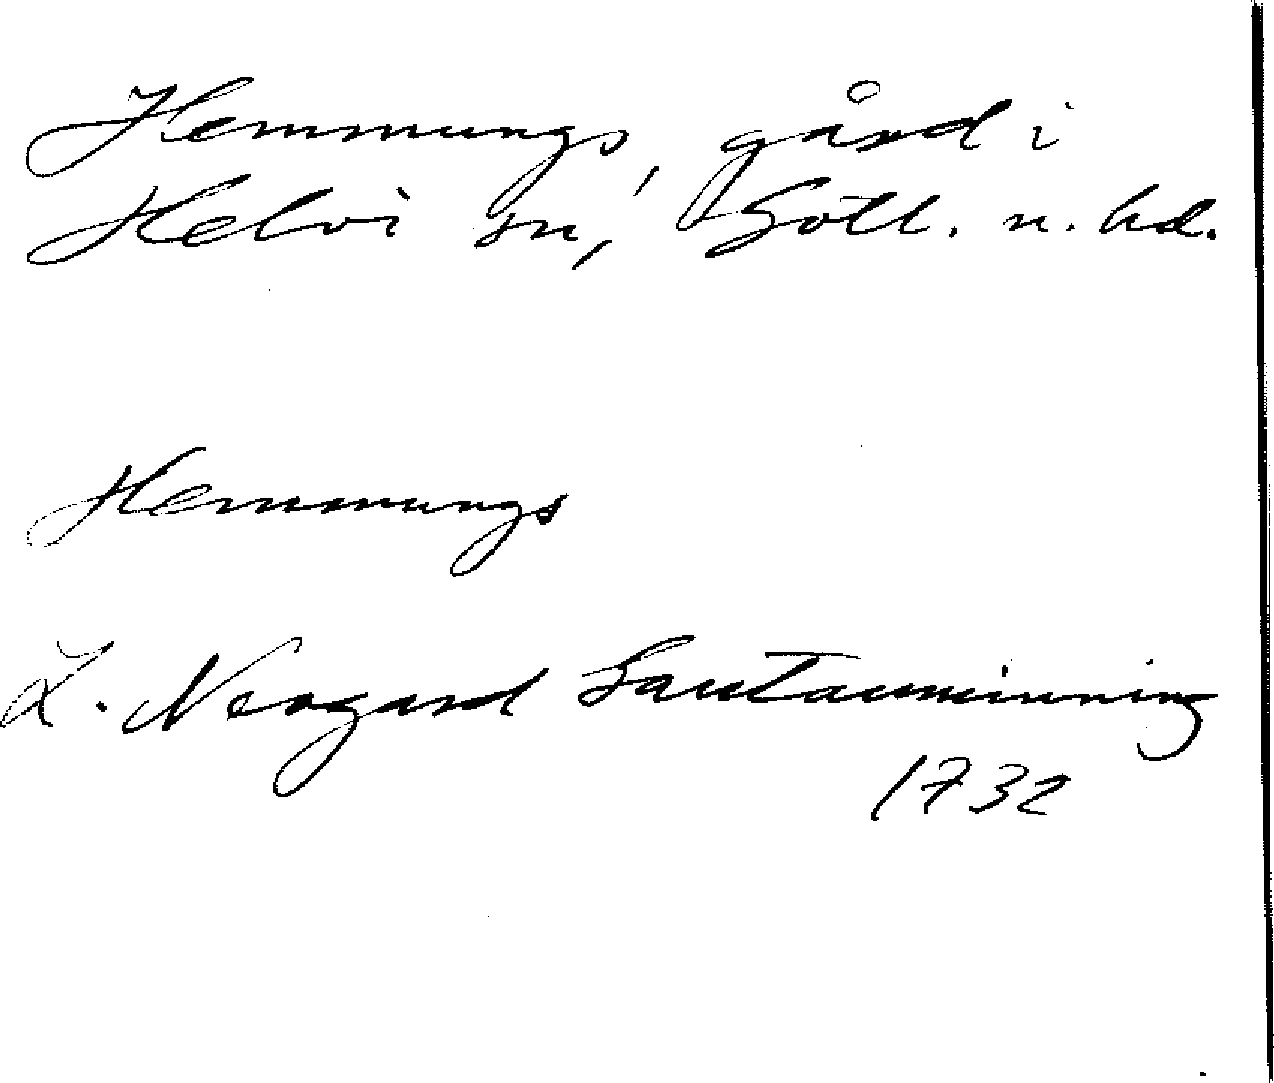 Hemmungs, gård i
Hellvi sn, Gotl. n. hd.
Hemmungs
L. Neogard Gautauminning
1732